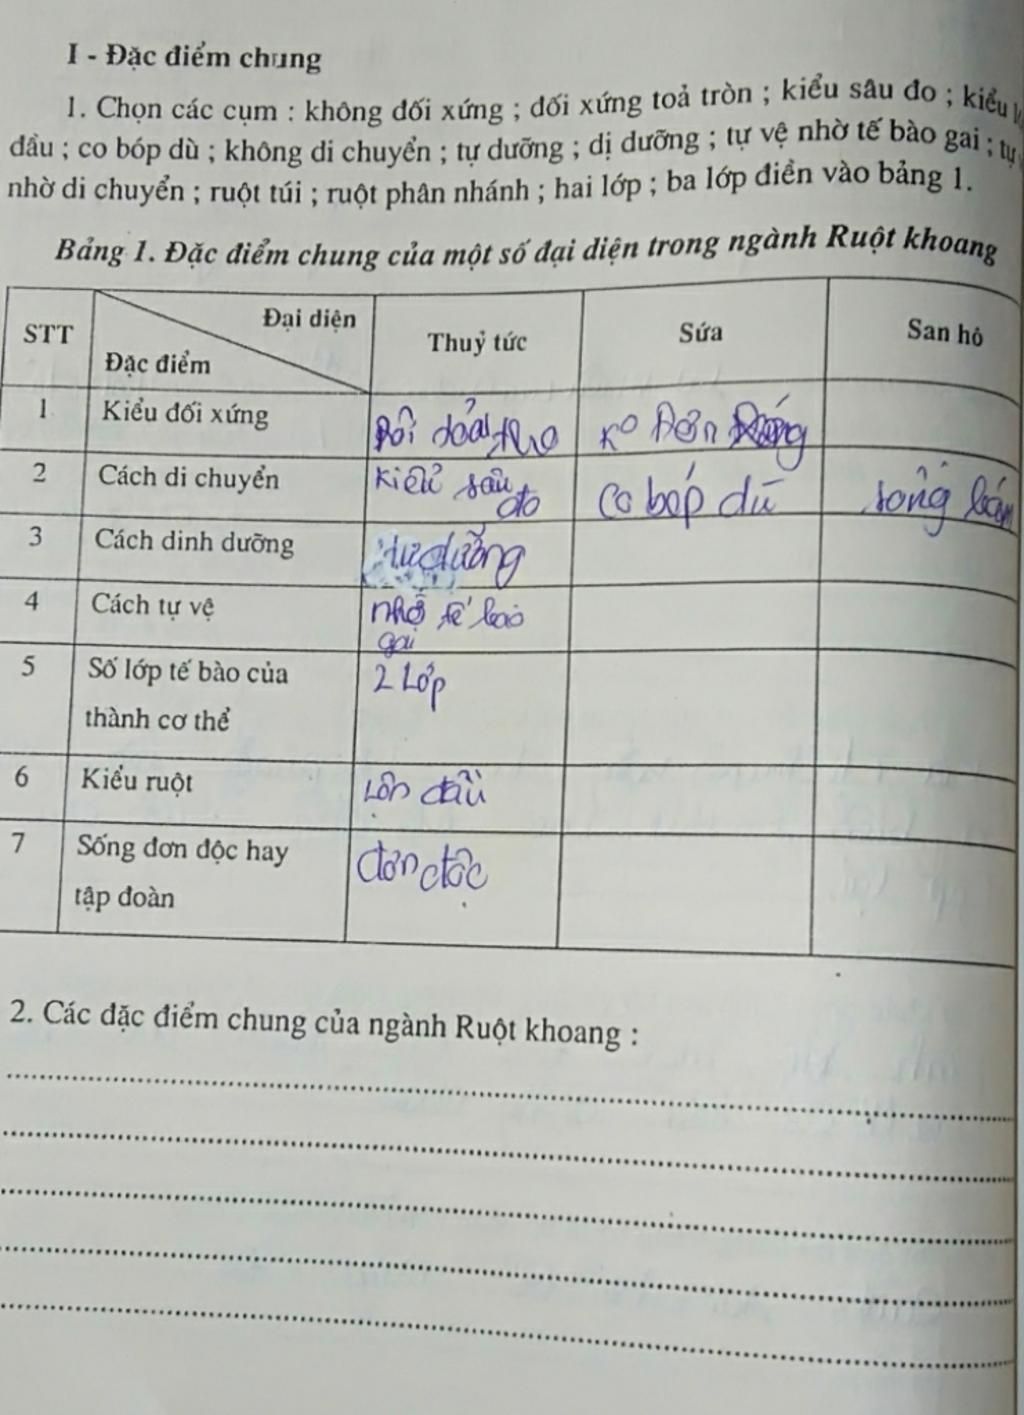 I - Đặc điểm chung
1. Chọn các cụm : không đối xứng ; đối xứng toả tròn ; kiểu sâu đo ; kiểu
đầu ; co bóp dù ; không di chuyển ; tự dưỡng ; dị dưỡng ; tự vệ nhờ tế bào gai ; tự
nhờ di chuyển ; ruột túi ; ruột phân nhánh ; hai lớp ; ba lớp điền vào bảng 1.
Bảng 1. Đặc điểm chung của một số đại diện trong ngành Ruột khoang
STT
Đại diện
Đặc điểm
Thuỷ tức
Sứa
San hô
1
Kiểu đối xứng
2
Cách di chuyển
Kiểu sâu
đo
Co bóp dù
sống bám
3
Cách dinh dưỡng
tự dưỡng
4
Cách tự vệ
nhờ tế bào
gai
5
Số lớp tế bào của
thành cơ thể
2 Lớp
6
Kiểu ruột
Lộn đầu
7
Sống đơn độc hay
tập đoàn
đơn độc
2. Các đặc điểm chung của ngành Ruột khoang :